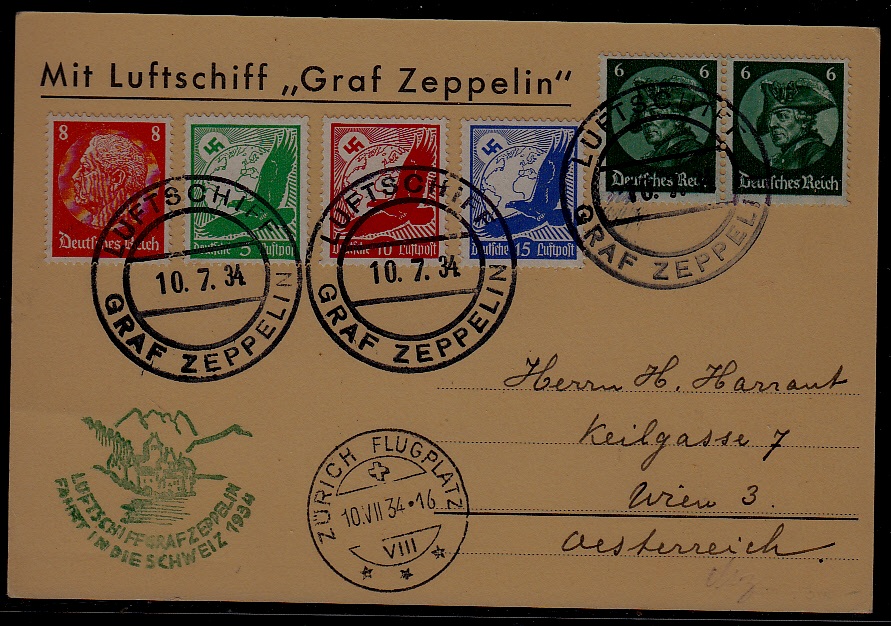 Mit Luftschiff „Graf Zeppelin"
6 6
Deutsches Reich
6 6
Deutsches Reich
8 8
Deutsches Reich
Deutsche 5 Luftpost
Deutsche 10 Luftpost
Deutsche 15 Luftpost
LUFTSCHIFF
10.7.34
GRAF ZEPPELIN
LUFTSCHIFF
10.7.34
GRAF ZEPPELIN
LUFTSCHIFF
10.7.34
GRAF ZEPPELIN
Herrn H. Harraut
Keilgasse 7
Wien 3.
Oesterreich
ZÜRICH FLUGPLATZ
10.VII 34•16
VIII
LUFTSCHIFF GRAF ZEPPELIN
FAHRT IN DIE SCHWEIZ 1934